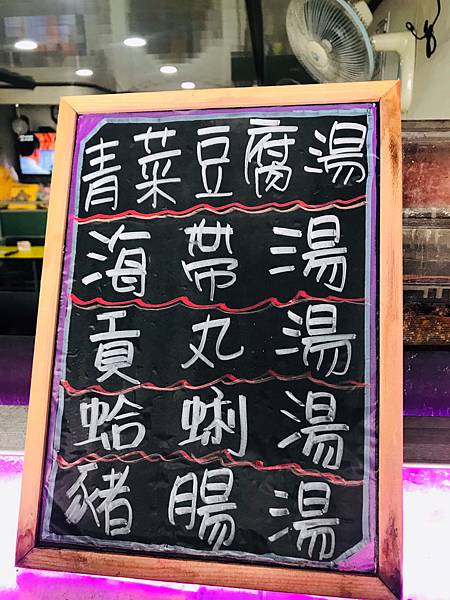 青菜豆腐湯
海帶湯
貢丸湯
蛤蜊湯
豬腸湯